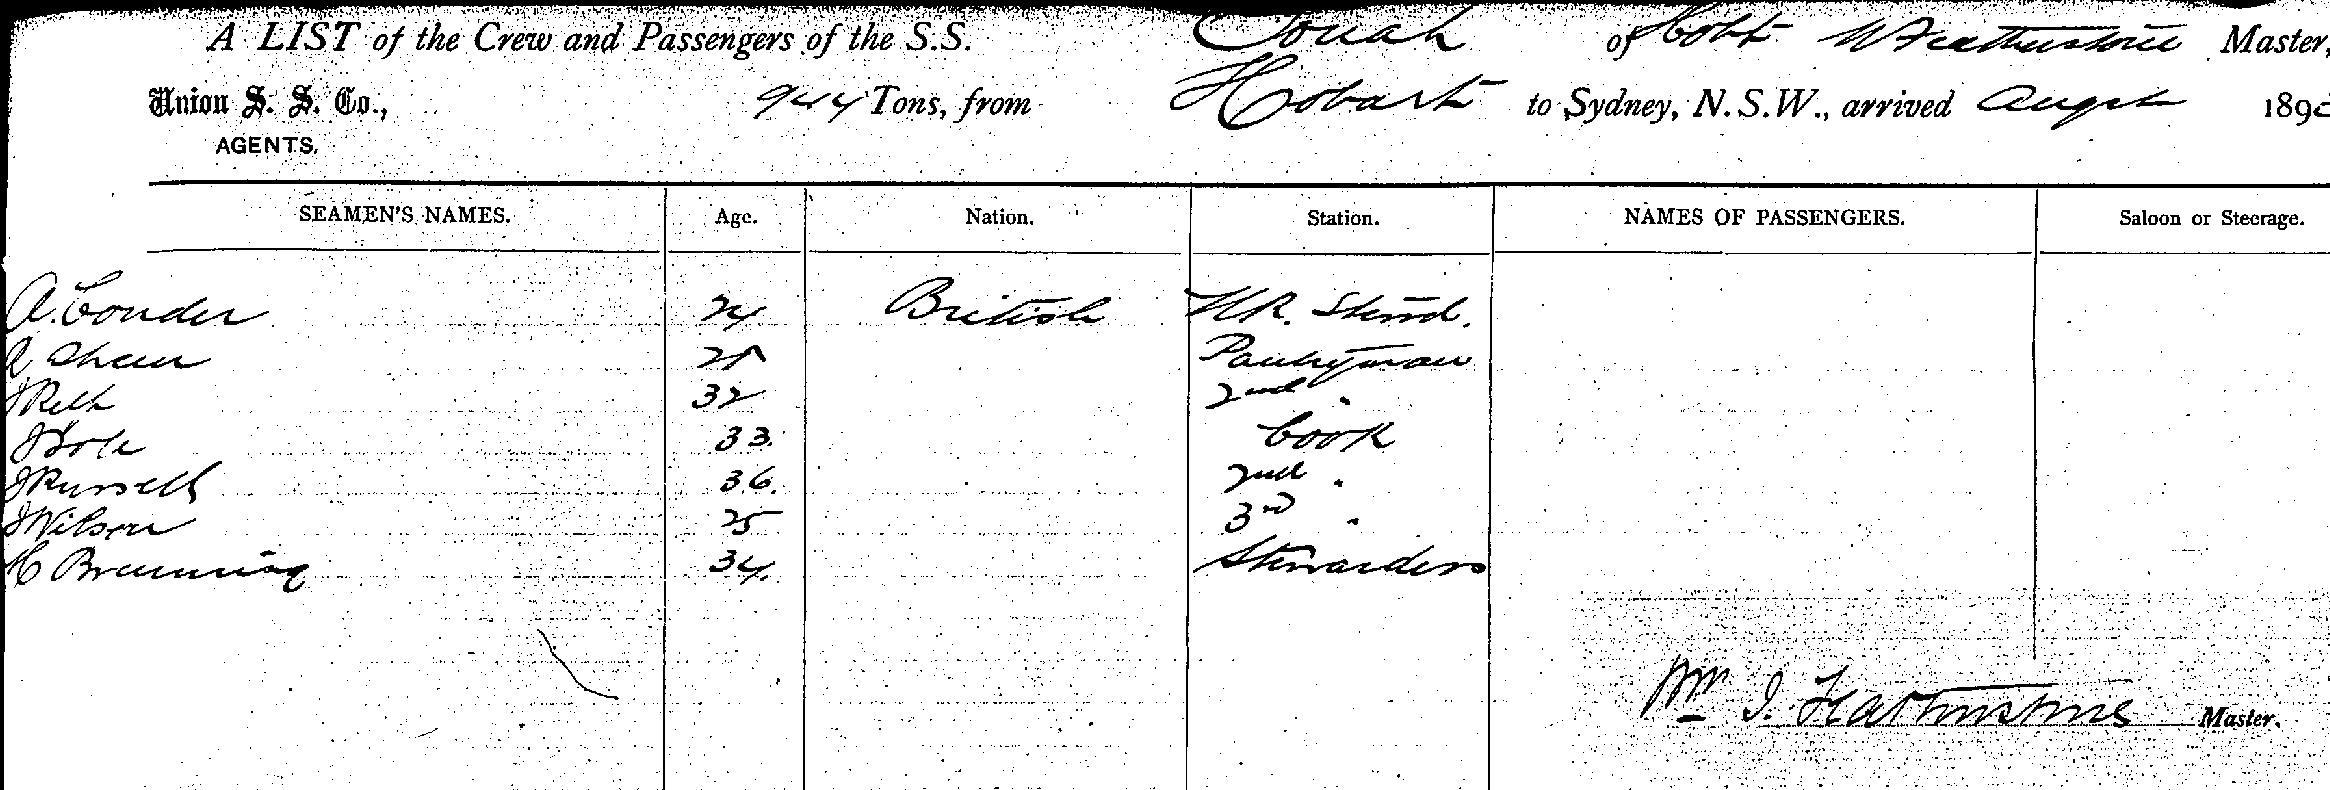 A LIST of the Crew and Passengers of the S.S. of Hobt W Featherstone Master,
Union S. S. Co., 944 Tons, from Hobart to Sydney, N.S.W., arrived Augst 189
AGENTS.
SEAMEN'S NAMES. Age. Nation. Station. NAMES OF PASSENGERS. Saloon or Steerage.
A. Conder 24 British F.R. Stewd.
Shaw Pantryman
32 2nd "
J 33 Cook
J Russell 36 2nd "
J Wilson 25 3rd "
Browning 34 Stewardess
Wm J. Featherstone Master.